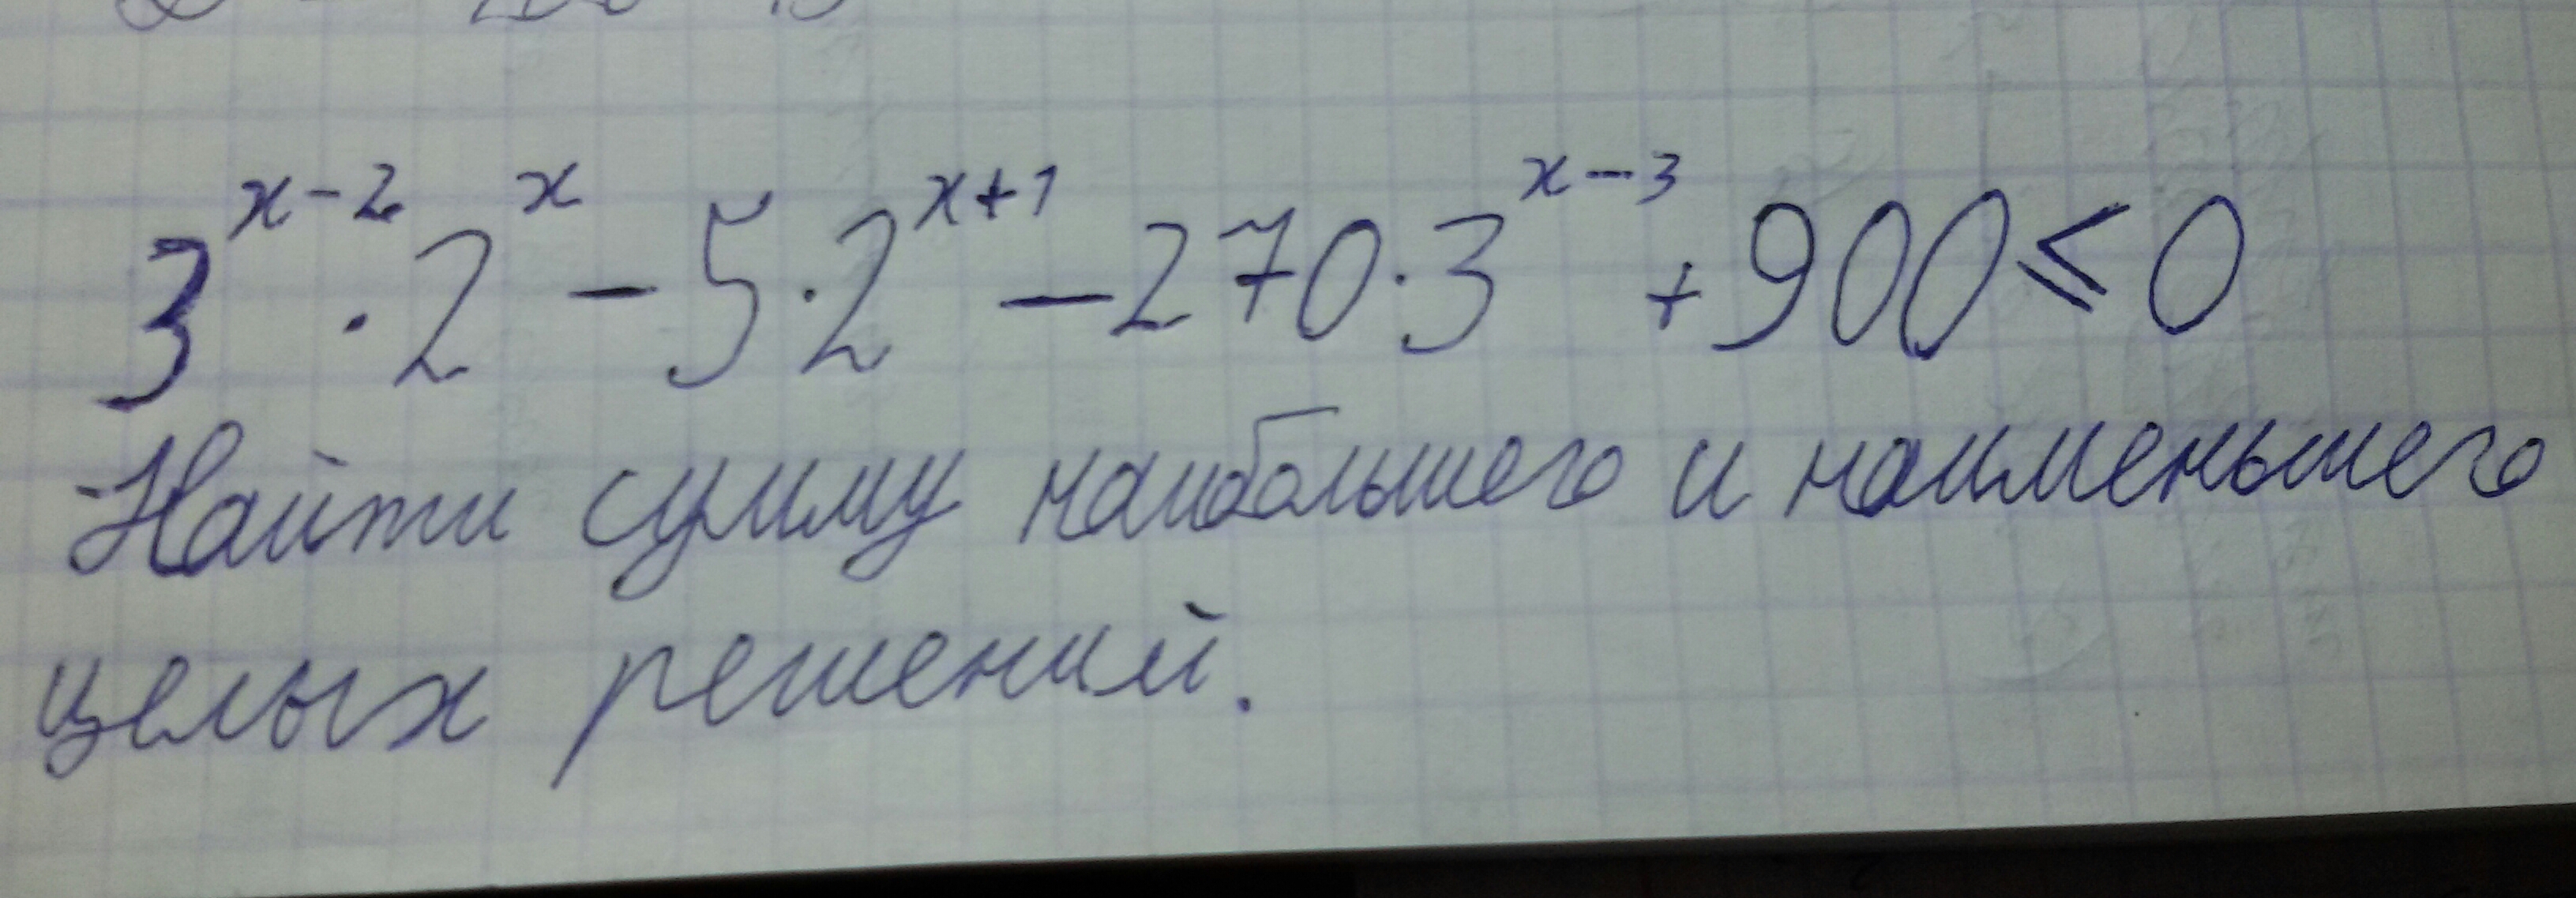 3^{x-2} · 2^x - 5 · 2^{x+1} - 270 · 3^{x-3} + 900 ⩽ 0
Найти сумму наибольшего и наименьшего
целых решений.